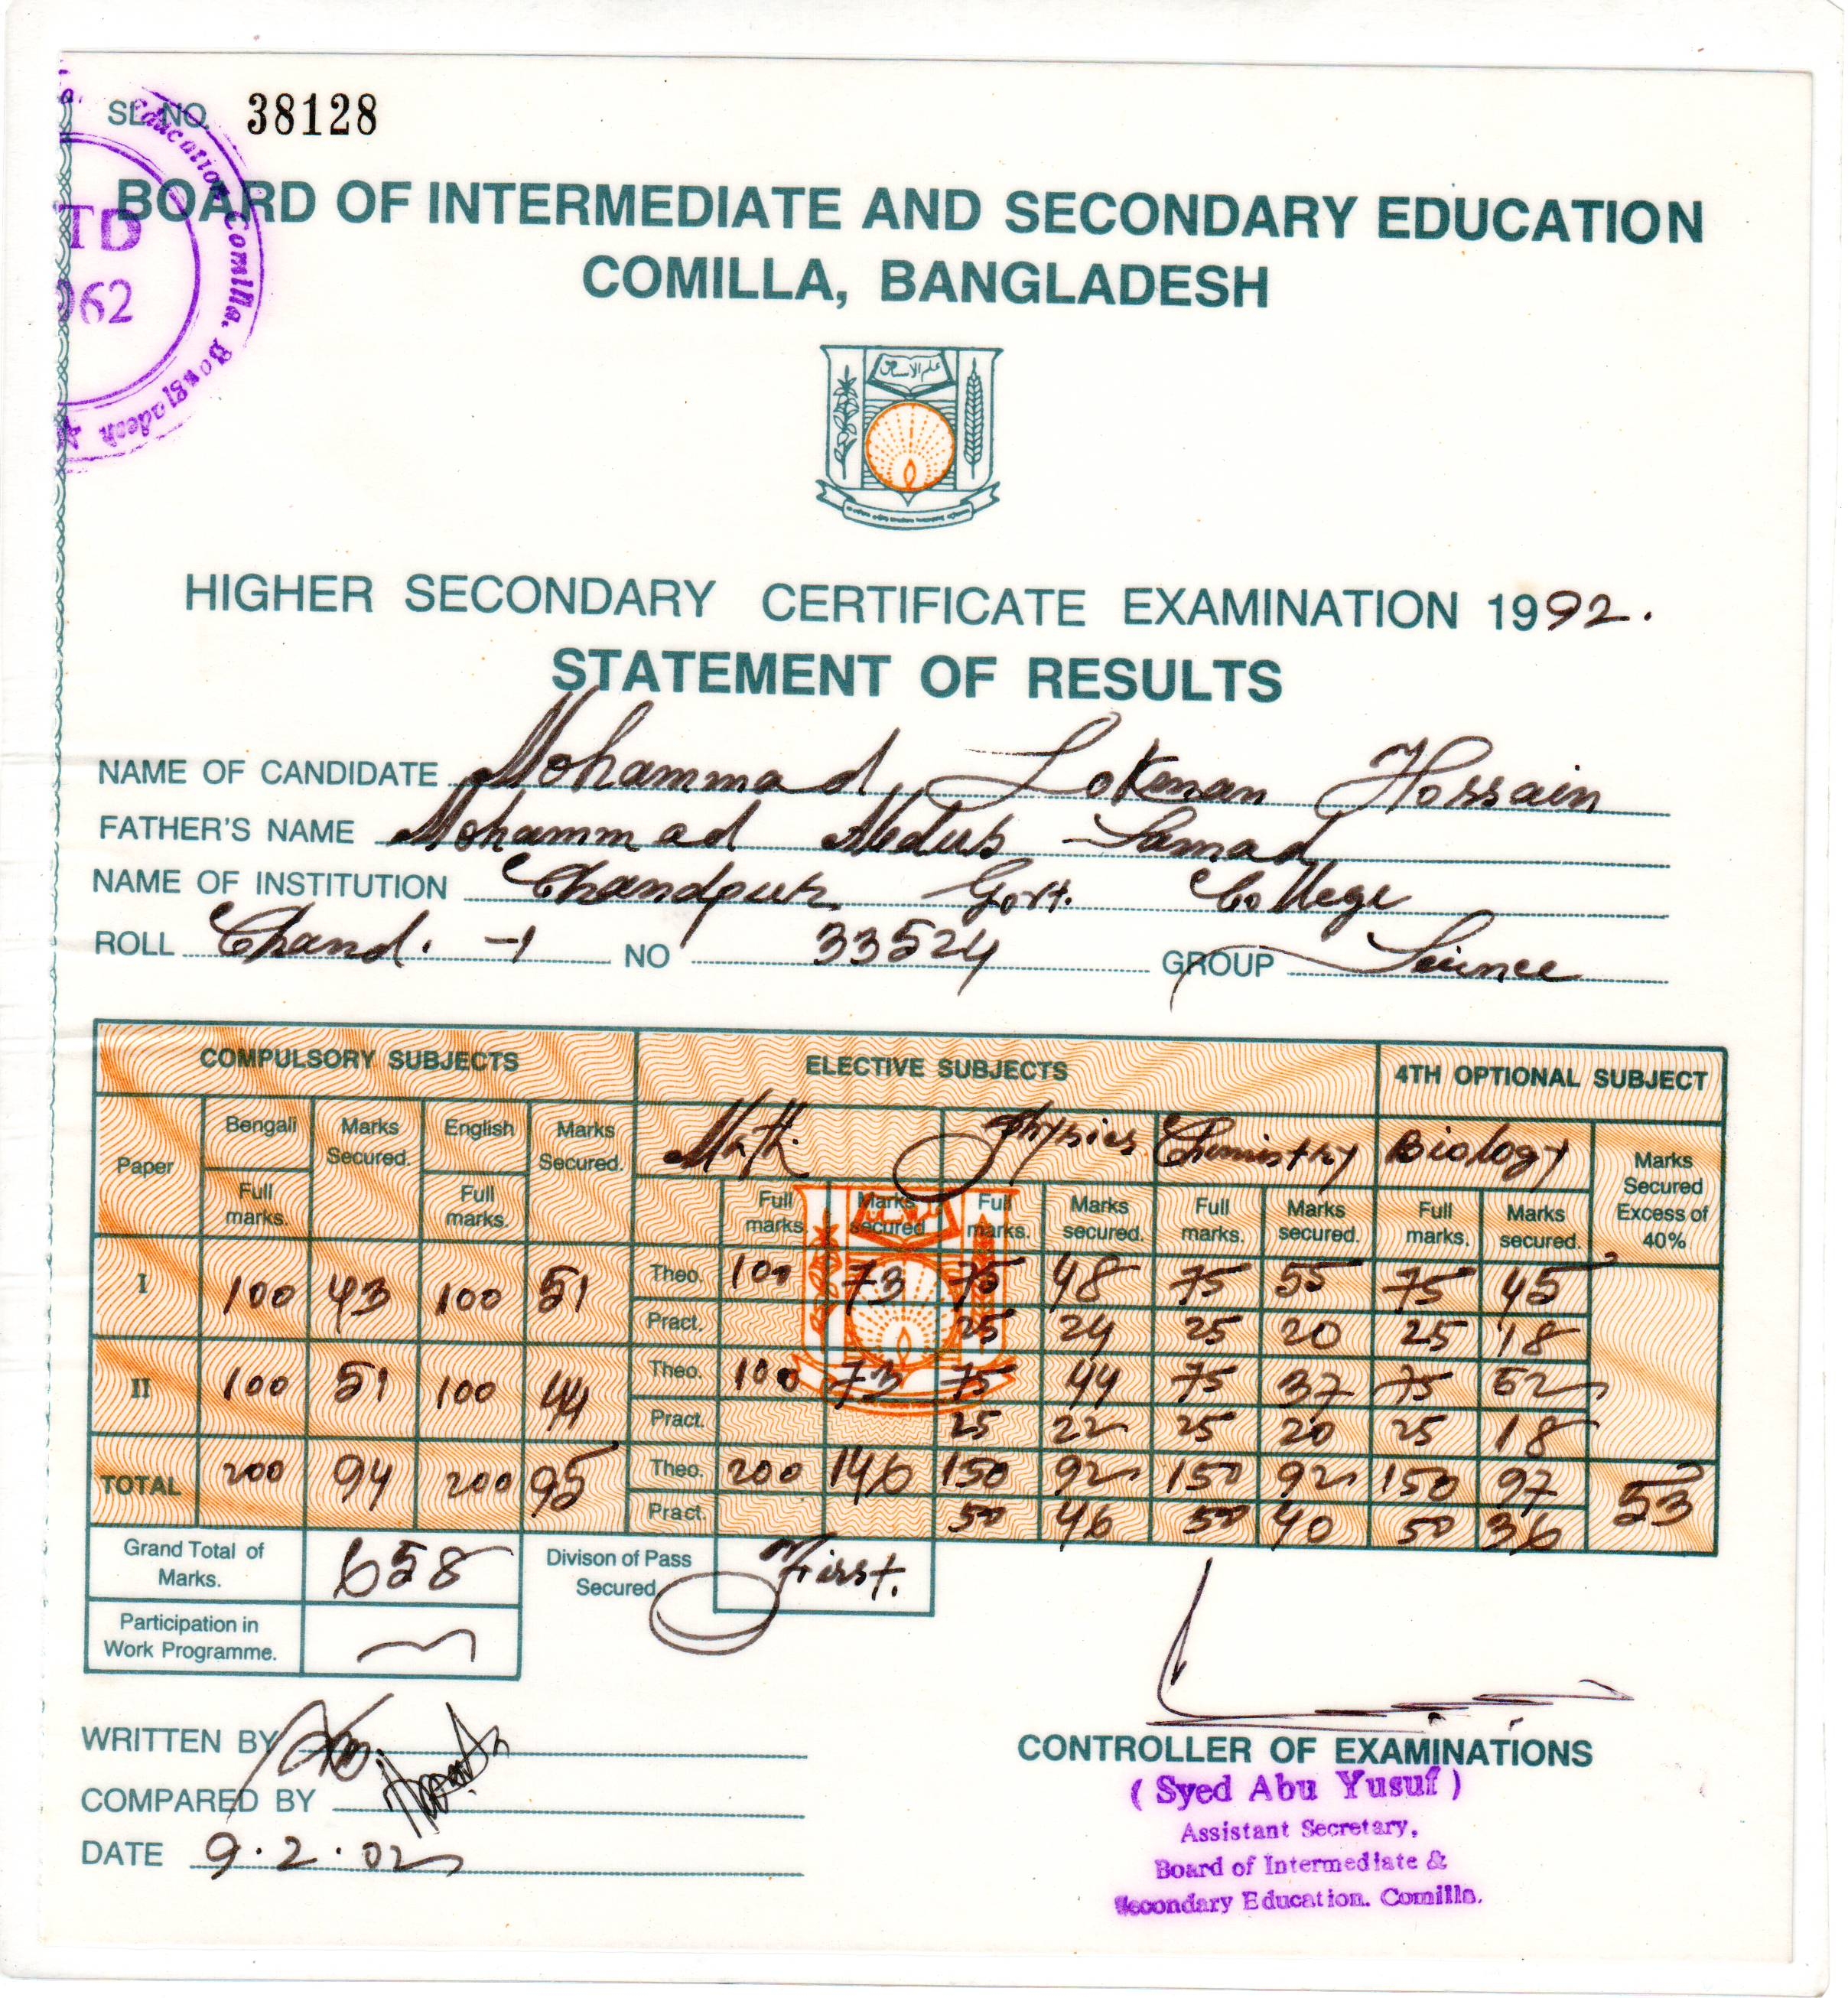 SL. NO. 38128
Education, Comilla, Bangladesh
TD
962
BOARD OF INTERMEDIATE AND SECONDARY EDUCATION
COMILLA, BANGLADESH
HIGHER SECONDARY CERTIFICATE EXAMINATION 1992.
STATEMENT OF RESULTS
NAME OF CANDIDATE Mohammad Lokman Hossain
FATHER'S NAME Mohammad Abdus Samad
NAME OF INSTITUTION Chandpur Govt. College
ROLL Chand. -1 NO 33524 GROUP Science
COMPULSORY SUBJECTS ELECTIVE SUBJECTS 4TH OPTIONAL SUBJECT
Paper Bengali Marks Secured. English Marks Secured. Math. Physics Chemistry Biology Marks Secured Excess of 40%
Full marks. Full marks. Full marks Marks secured Full marks. Marks secured. Full marks. Marks secured. Full marks. Marks secured.
I 100 43 100 51 Theo. 100 73 75 48 75 55 75 45
Pract. 25 24 25 20 25 18
II 100 51 100 44 Theo. 100 73 75 44 75 37 75 52
Pract. 25 22 25 20 25 18
TOTAL 200 94 200 95 Theo. 200 146 150 92 150 92 150 97 53
Pract. 50 46 50 40 50 36
Grand Total of Marks. 658 Divison of Pass Secured First.
Participation in Work Programme.
WRITTEN BY
COMPARED BY
DATE 9.2.02
CONTROLLER OF EXAMINATIONS
( Syed Abu Yusuf )
Assistant Secretary,
Board of Intermediate &
Secondary Education. Comilla.